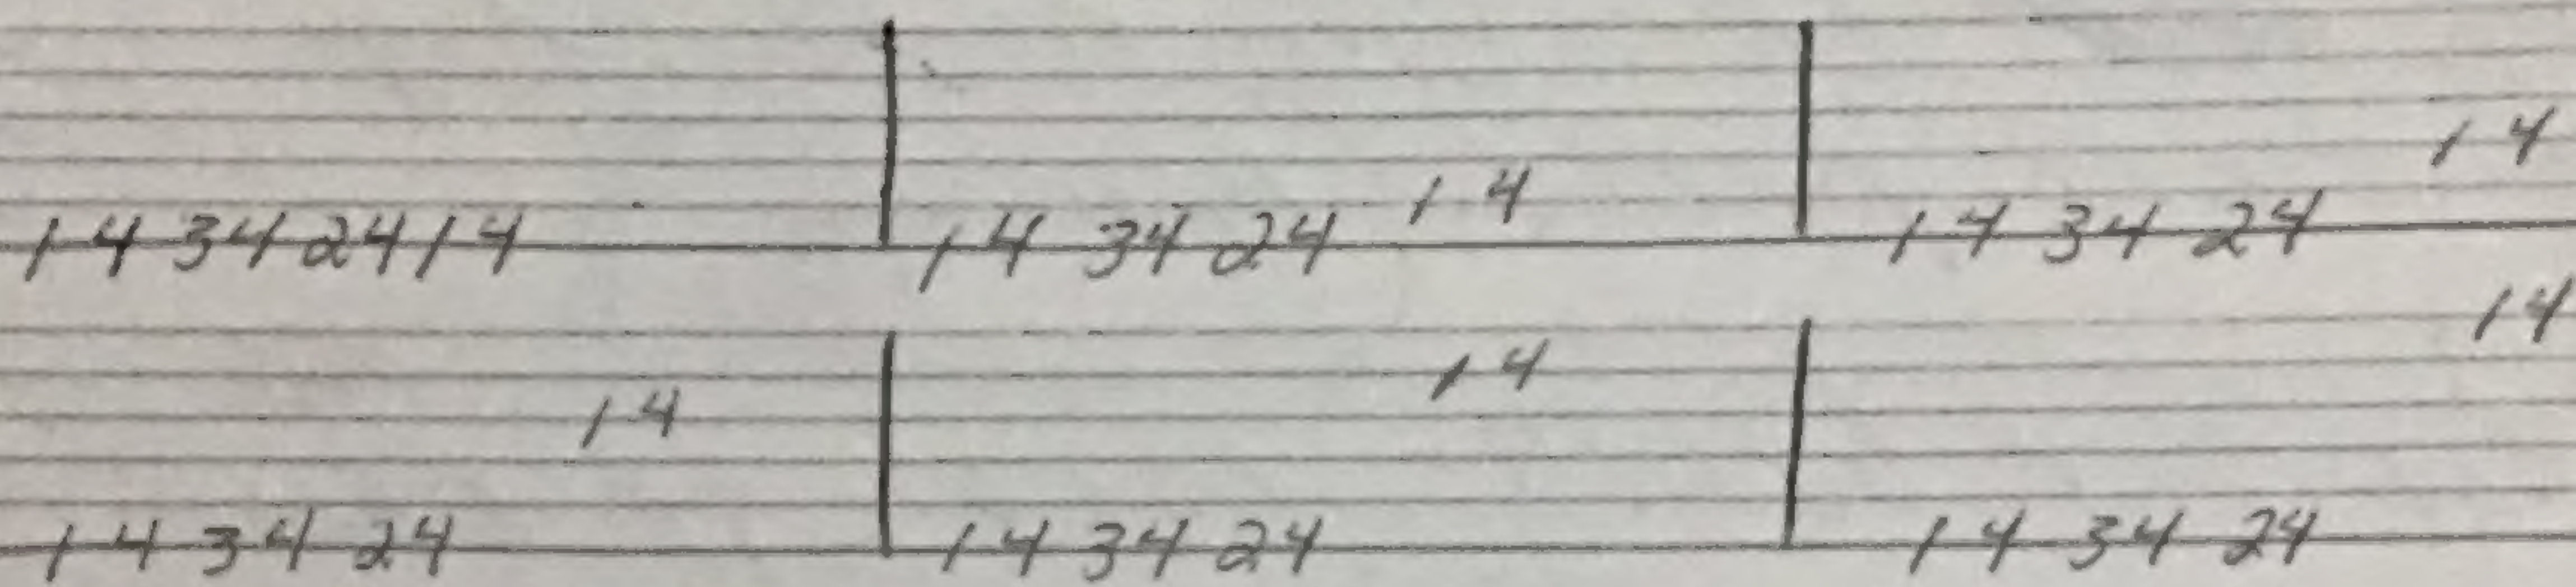 1 4 3 4 2 4 1 4 1 4 3 4 2 4 1 4 1 4 3 4 2 4 1 4
1 4 3 4 2 4 1 4 1 4 3 4 2 4 1 4 1 4 3 4 2 4 1 4